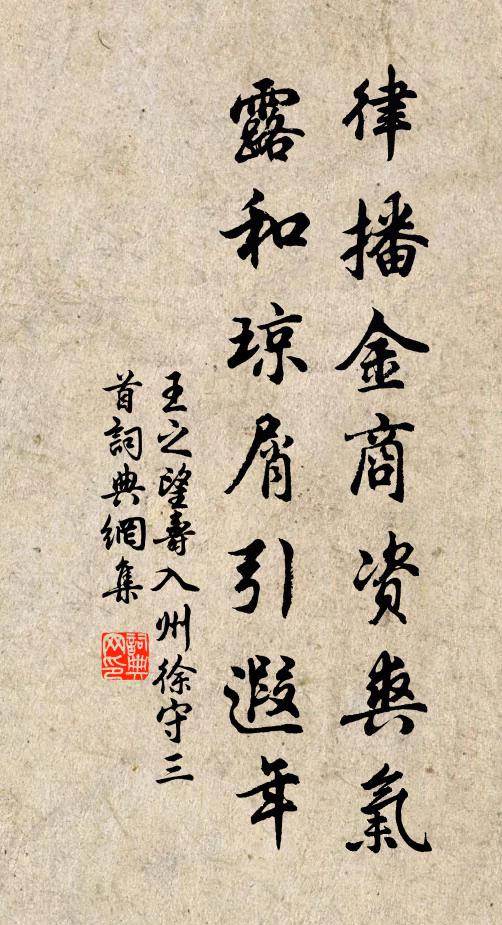 律播金商資爽氣
露和琼屑引遐年
王之望壽入州徐守三
首詞典網集
詞典
网印